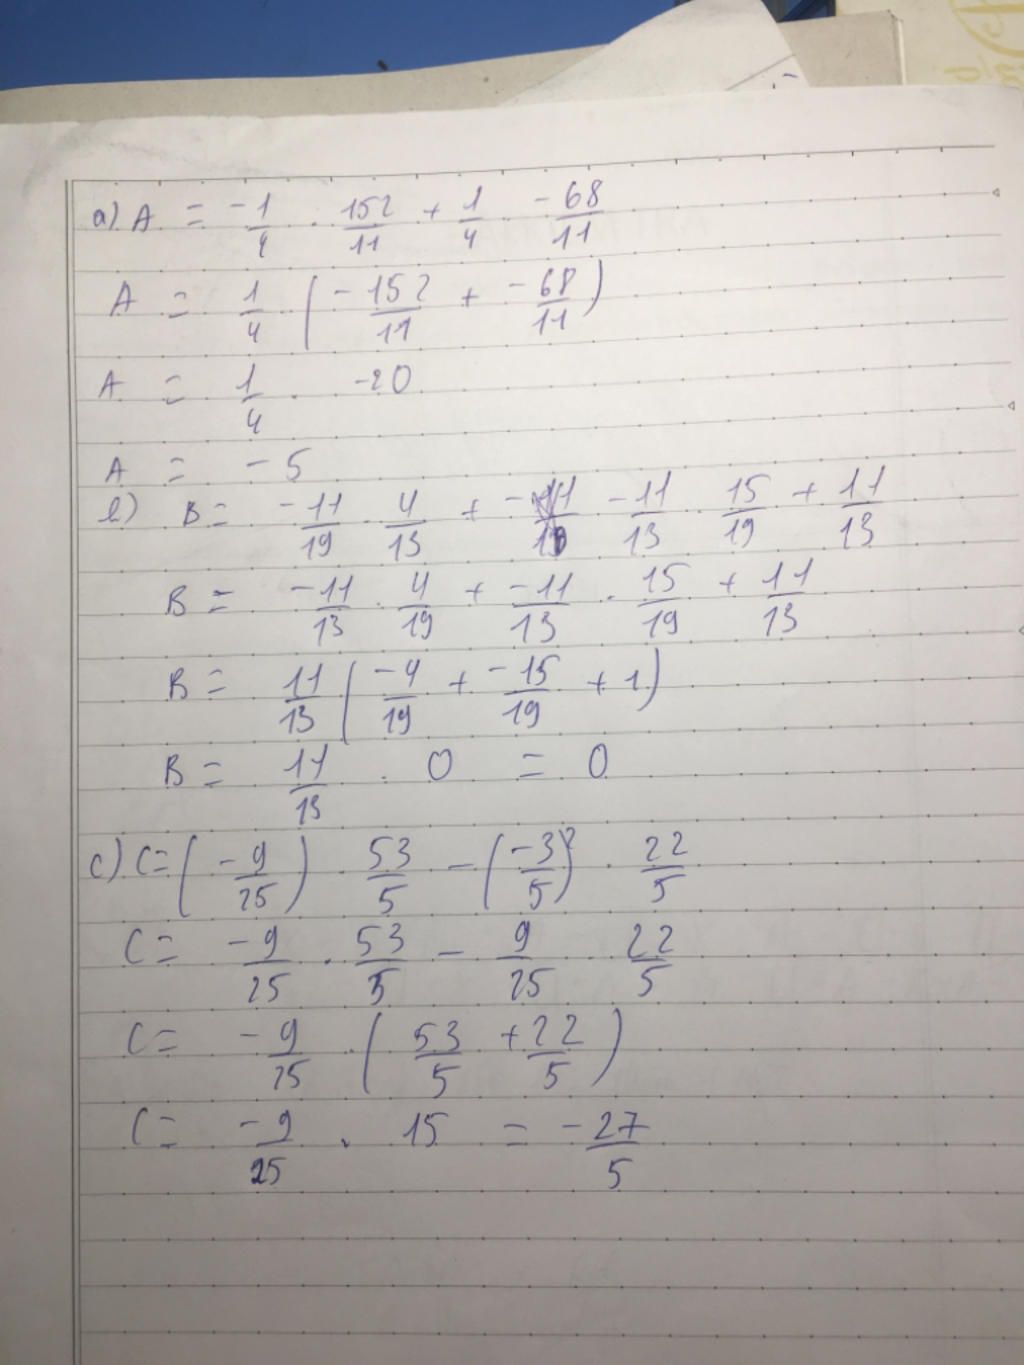 a) A = -1/4 . 152/11 + 1/4 . -68/11
A = 1/4 ( -152/11 + -68/11 )
A = 1/4 . -20
A = -5
b) B = -11/19 . 4/13 + -11/13 . 15/19 + 11/13
B = -11/13 . 4/19 + -11/13 . 15/19 + 11/13
B = 11/13 ( -4/19 + -15/19 + 1 )
B = 11/13 . 0 = 0
c) C = ( -9/25 ) . 53/5 - ( -3/5 )² . 22/5
C = -9/25 . 53/5 - 9/25 . 22/5
C = -9/25 . ( 53/5 + 22/5 )
C = -9/25 . 15 = -27/5